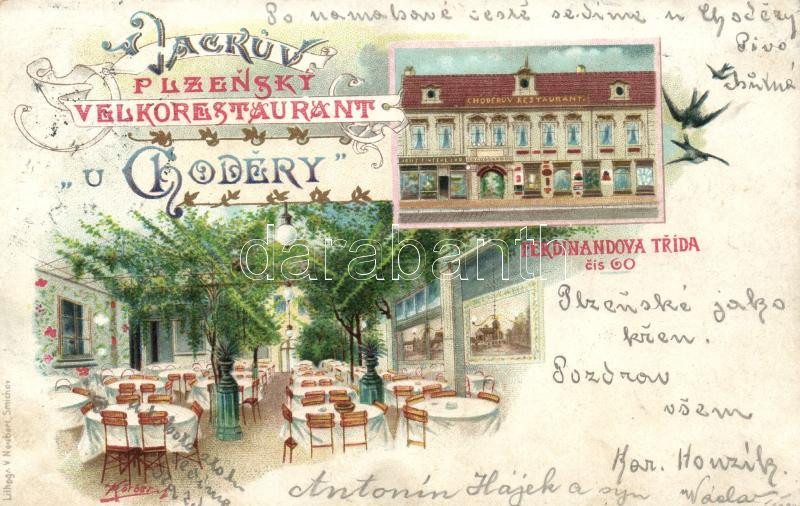 Po namahavé cestě sedíme u Choděry
Pivo
chutná
JACKŮV
PLZEŇSKÝ
VELKORESTAURANT
„U CHODĚRY"
CHODĚRŮV RESTAURANT.
FERDINANDOVA TŘÍDA
čís 60
darabanth.com
Plzeňské jako
křen.
Pozdrav
všem
Kar. Houzík.
Antonín Hájek a syn Václav
Lithogr. V. Neubert, Smíchov